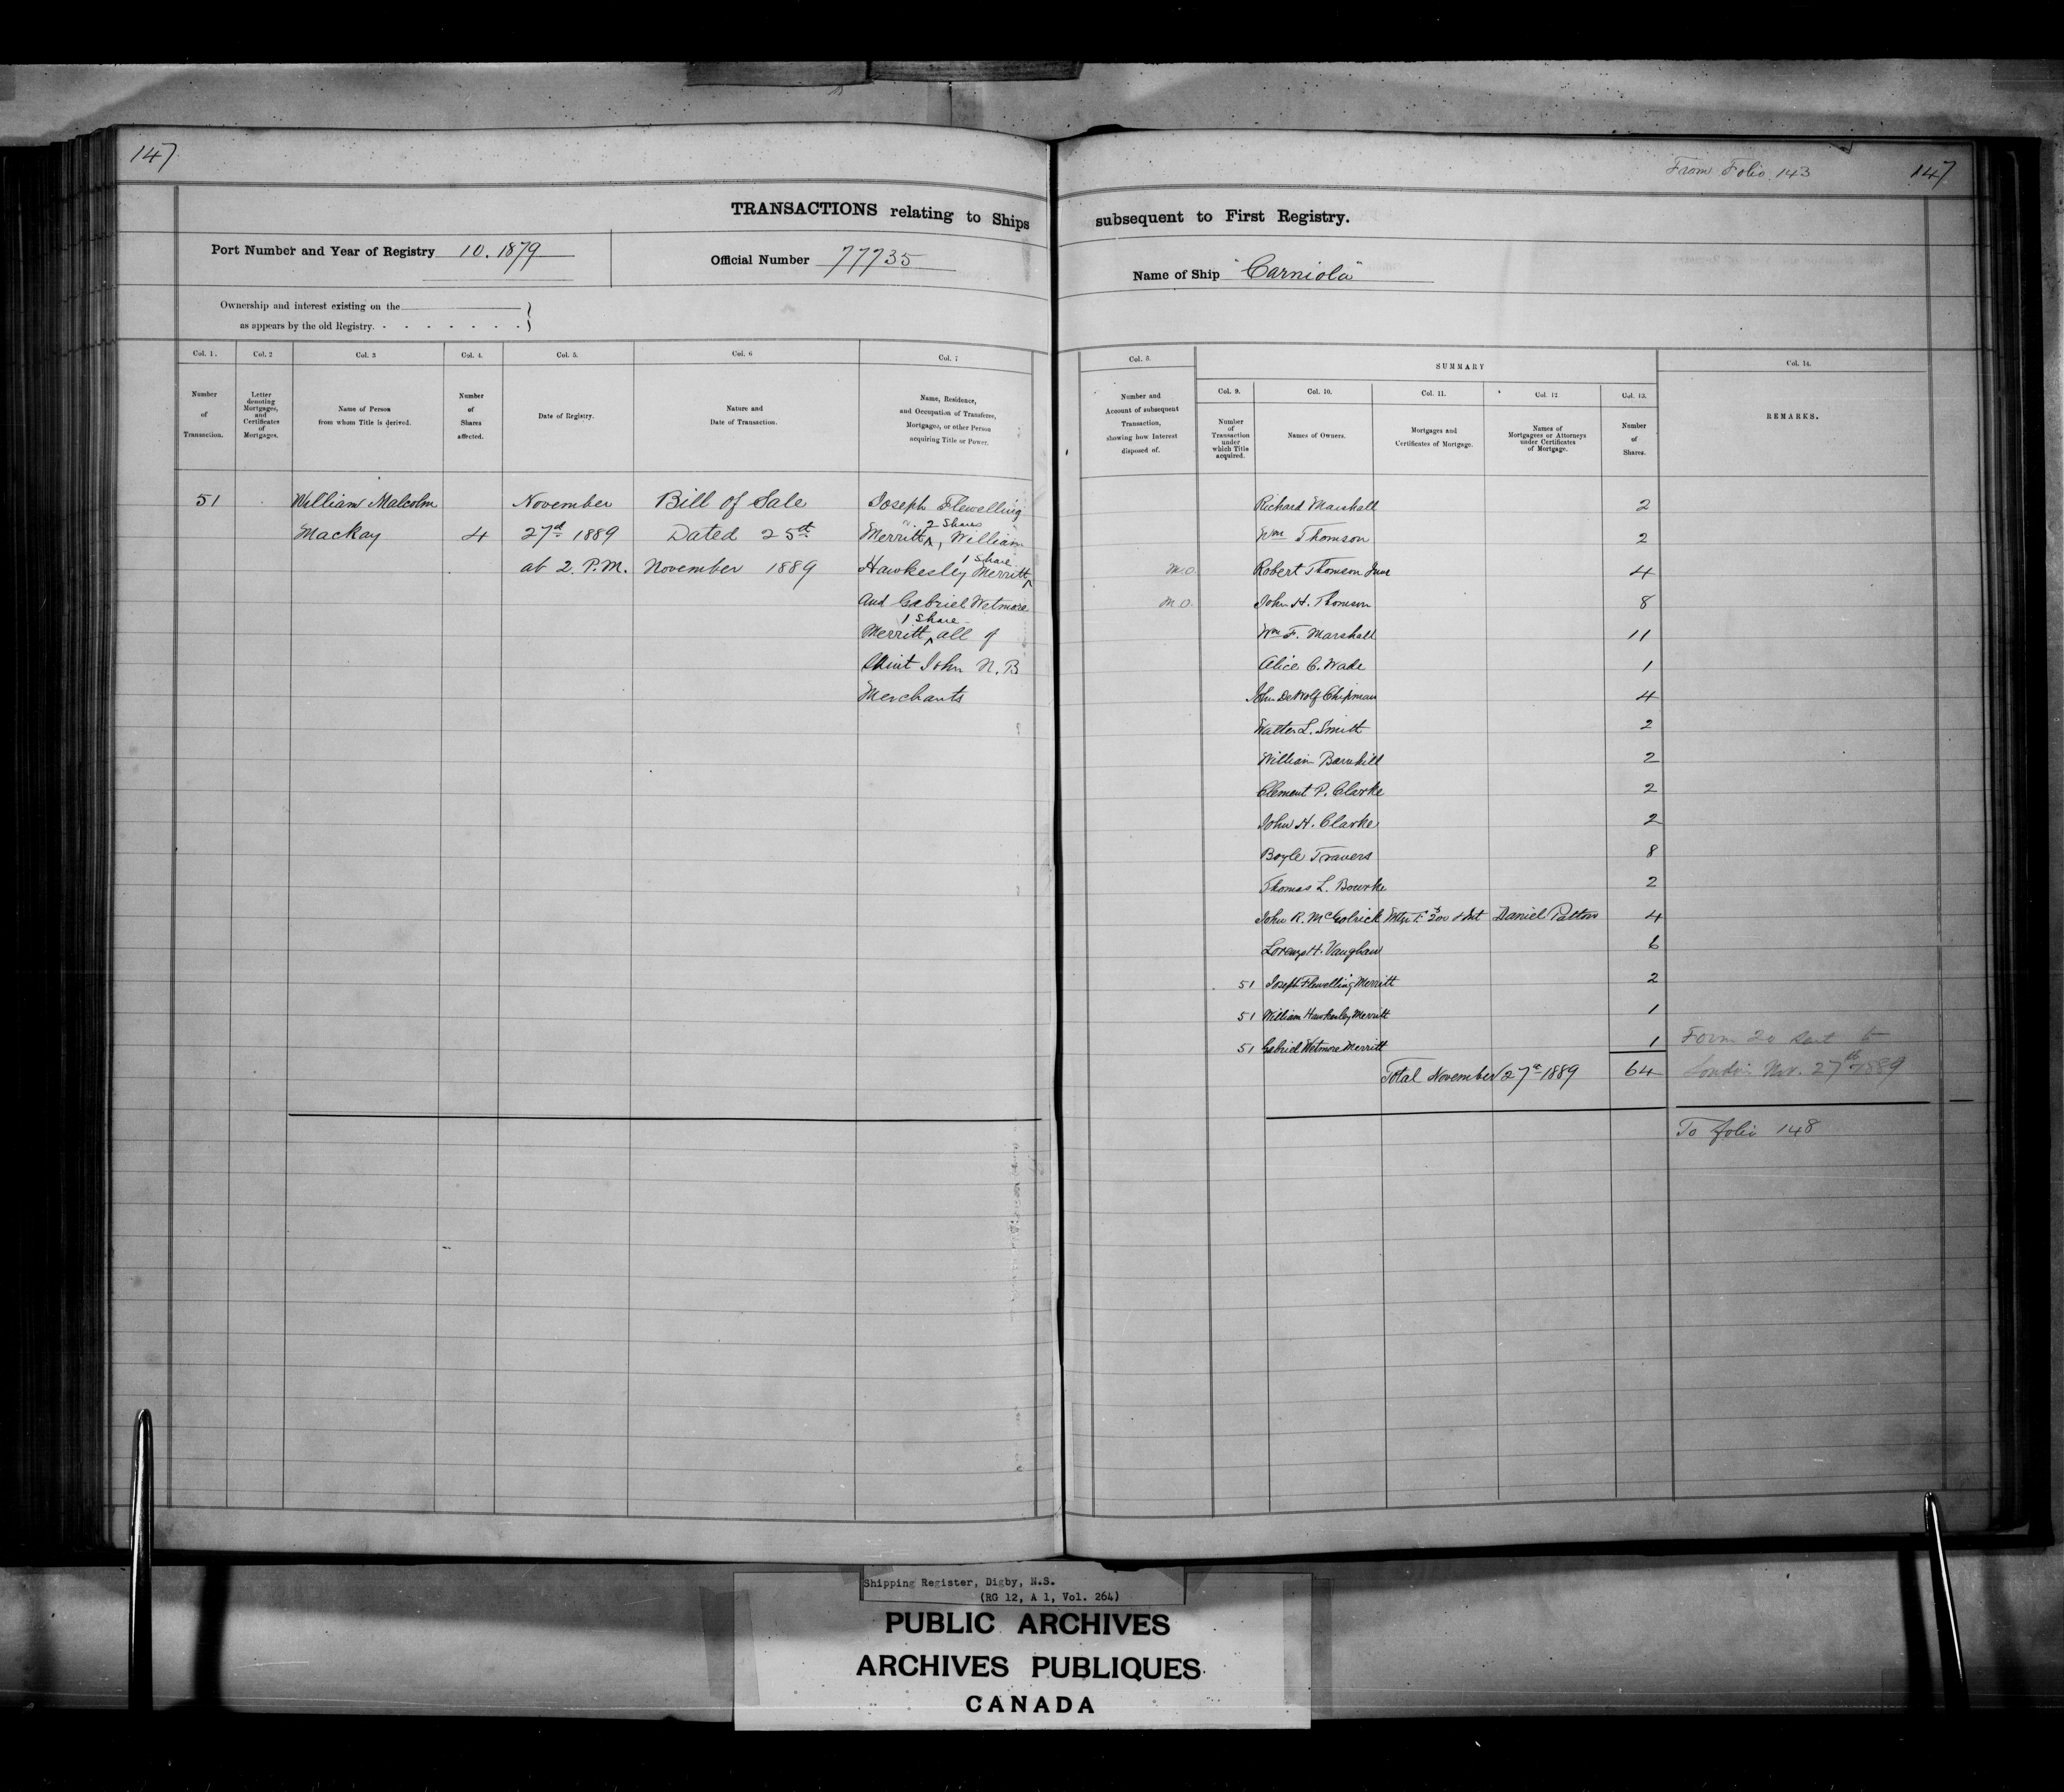 147
From Folio 143
147
TRANSACTIONS relating to Ships
subsequent to First Registry.
Port Number and Year of Registry 10. 1879
Official Number 77735
Name of Ship "Carniola"
Ownership and interest existing on the
as appears by the old Registry.
Col. 1.
Col. 2
Col. 3
Col. 4.
Col. 5.
Col. 6
Col. 7
Number
of
Transaction.
Letter
denoting
Mortgages,
and
Certificates
of
Mortgages.
Name of Person
from whom Title is derived.
Number
of
Shares
affected.
Date of Registry.
Nature and
Date of Transaction.
Name, Residence,
and Occupation of Transferee,
Mortgagee, or other Person
acquiring Title or Power.
51 William Malcolm November Bill of Sale Joseph Flewelling
2 Shares
Mackay 4 27d 1889 Dated 25th Merritt ^, William
1 Share
at 2. P.M. November 1889 Hawkesley Merritt ^
and Gabriel Wetmore
1 Share
Merritt ^ all of
Saint John N.B
Merchants
Col. 8.
SUMMARY
Col. 14.
Col. 9.
Col. 10.
Col. 11.
Col. 12
Col. 13.
Number and
Account of subsequent
Transaction,
showing how Interest
disposed of.
Number
of
Transaction
under
which Title
acquired.
Names of Owners.
Mortgages and
Certificates of Mortgage.
Names of
Mortgagees or Attorneys
under Certificates
of Mortgage.
Number
of
Shares.
REMARKS.
Richard Marshall 2
Wm Thomson 2
M.O. Robert Thomson Junr 4
M.O. John H. Thomson 8
Wm F. Marshall 11
Alice C. Wade 1
John DeWolf Chipman 4
Walter L. Smith 2
William Barnhill 2
Clement P. Clarke 2
John H. Clarke 2
Boyle Travers 8
Thomas L. Bourke 2
John R. McGolrick & Int Daniel Patton 4
Lorenzo H. Vaughan 6
51 Joseph Flewelling Merritt 2
51 William Hawkesley Merritt 1
51 Gabriel Wetmore Merritt 1 Form 20 sent to
Total November 27th 1889 64 London Nov. 27th 1889
To folio 148
Shipping Register, Digby, N.S.
(RG 12, A 1, Vol. 264)
PUBLIC ARCHIVES
ARCHIVES PUBLIQUES
CANADA